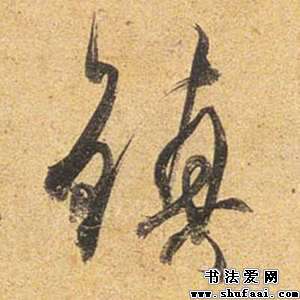 镇
书法爱网
www.shufaai.com